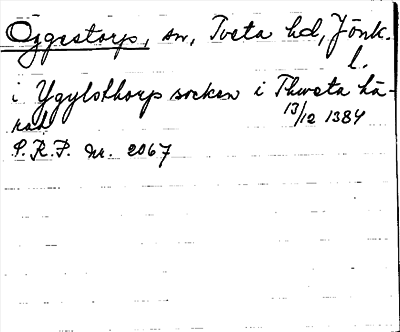 Öggestorp, sn, Tveta hd, Jönk.
l.
i Ygylsthorp socken i Thweta hä-
rad 13/12 1384
S.R.P. nr. 2067